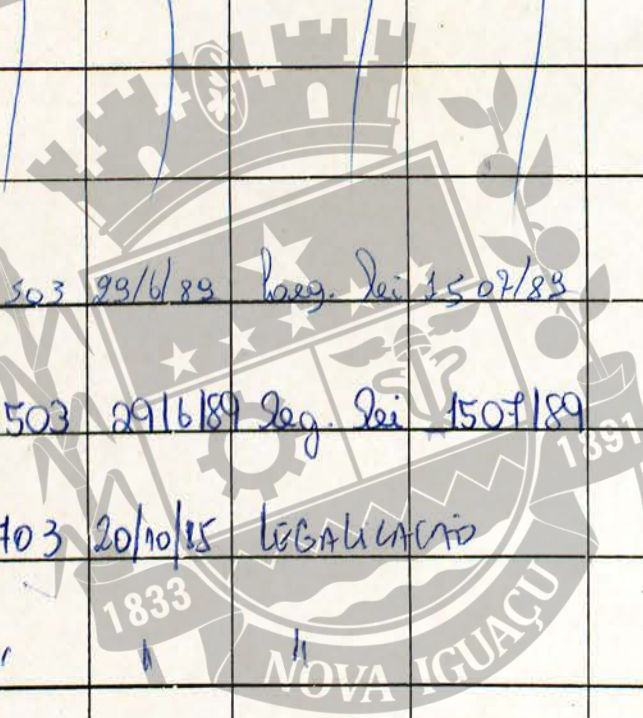 503 29/6/89 Lei 1507/89
503 29/6/89 Leg. Lei 1507/89
1891
703 20/10/85 LEGALIZAÇÃO
1833
" " "
NOVA IGUAÇU